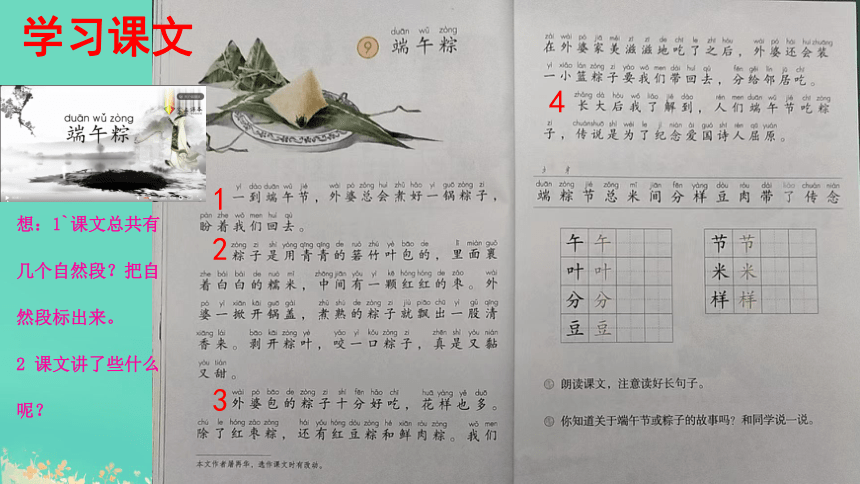 学习课文
duān wǔ zòng
端午粽
想：1`课文总共有
几个自然段？把自
然段标出来。
2 课文讲了些什么
呢？
duān wǔ zòng
9 端午粽
1
yí dào duān wǔ jié wài pó zǒng huì zhǔ hǎo yì guō zòng zi
一到端午节，外婆总会煮好一锅粽子，
pàn zhe wǒ men huí qù
盼着我们回去。
2
zòng zi shì yòng qīng qīng de ruò zhú yè bāo de lǐ miàn guǒ
粽子是用青青的箬竹叶包的，里面裹
zhe bái bái de nuò mǐ zhōng jiān yǒu yì kē hóng hóng de zǎo wài
着白白的糯米，中间有一颗红红的枣。外
pó yì xiān kāi guō gài zhǔ shú de zòng zi jiù piāo chū yì gǔ qīng
婆一掀开锅盖，煮熟的粽子就飘出一股清
xiāng lái bāo kāi zòng yè yǎo yì kǒu zòng zi zhēn shì yòu nián
香来。剥开粽叶，咬一口粽子，真是又黏
yòu tián
又甜。
3
wài pó bāo de zòng zi shí fēn hǎo chī huā yàng yě duō
外婆包的粽子十分好吃，花样也多。
chú le hóng zǎo zòng hái yǒu hóng dòu zòng hé xiān ròu zòng wǒ men
除了红枣粽，还有红豆粽和鲜肉粽。我们
本文作者屠再华，选作课文时有改动。
zài wài pó jiā měi zī zī de chī le zhī hòu wài pó hái huì zhuāng
在外婆家美滋滋地吃了之后，外婆还会装
yì xiǎo lán zòng zi yào wǒ men dài huí qù fēn gěi lín jū chī
一小篮粽子要我们带回去，分给邻居吃。
4
zhǎng dà hòu wǒ liǎo jiě dào rén men duān wǔ jié chī zòng
长大后我了解到，人们端午节吃粽
zi chuán shuō shì wèi le jì niàn ài guó shī rén qū yuán
子，传说是为了纪念爱国诗人屈原。
duān zòng jié zǒng mǐ jiān fēn yàng dòu ròu dài liǎo chuán niàn
端粽节总米间分样豆肉带了传念
午 午
叶 叶
分 分
豆 豆
节 节
米 米
样 样
朗读课文，注意读好长句子。
你知道关于端午节或粽子的故事吗？和同学说一说。